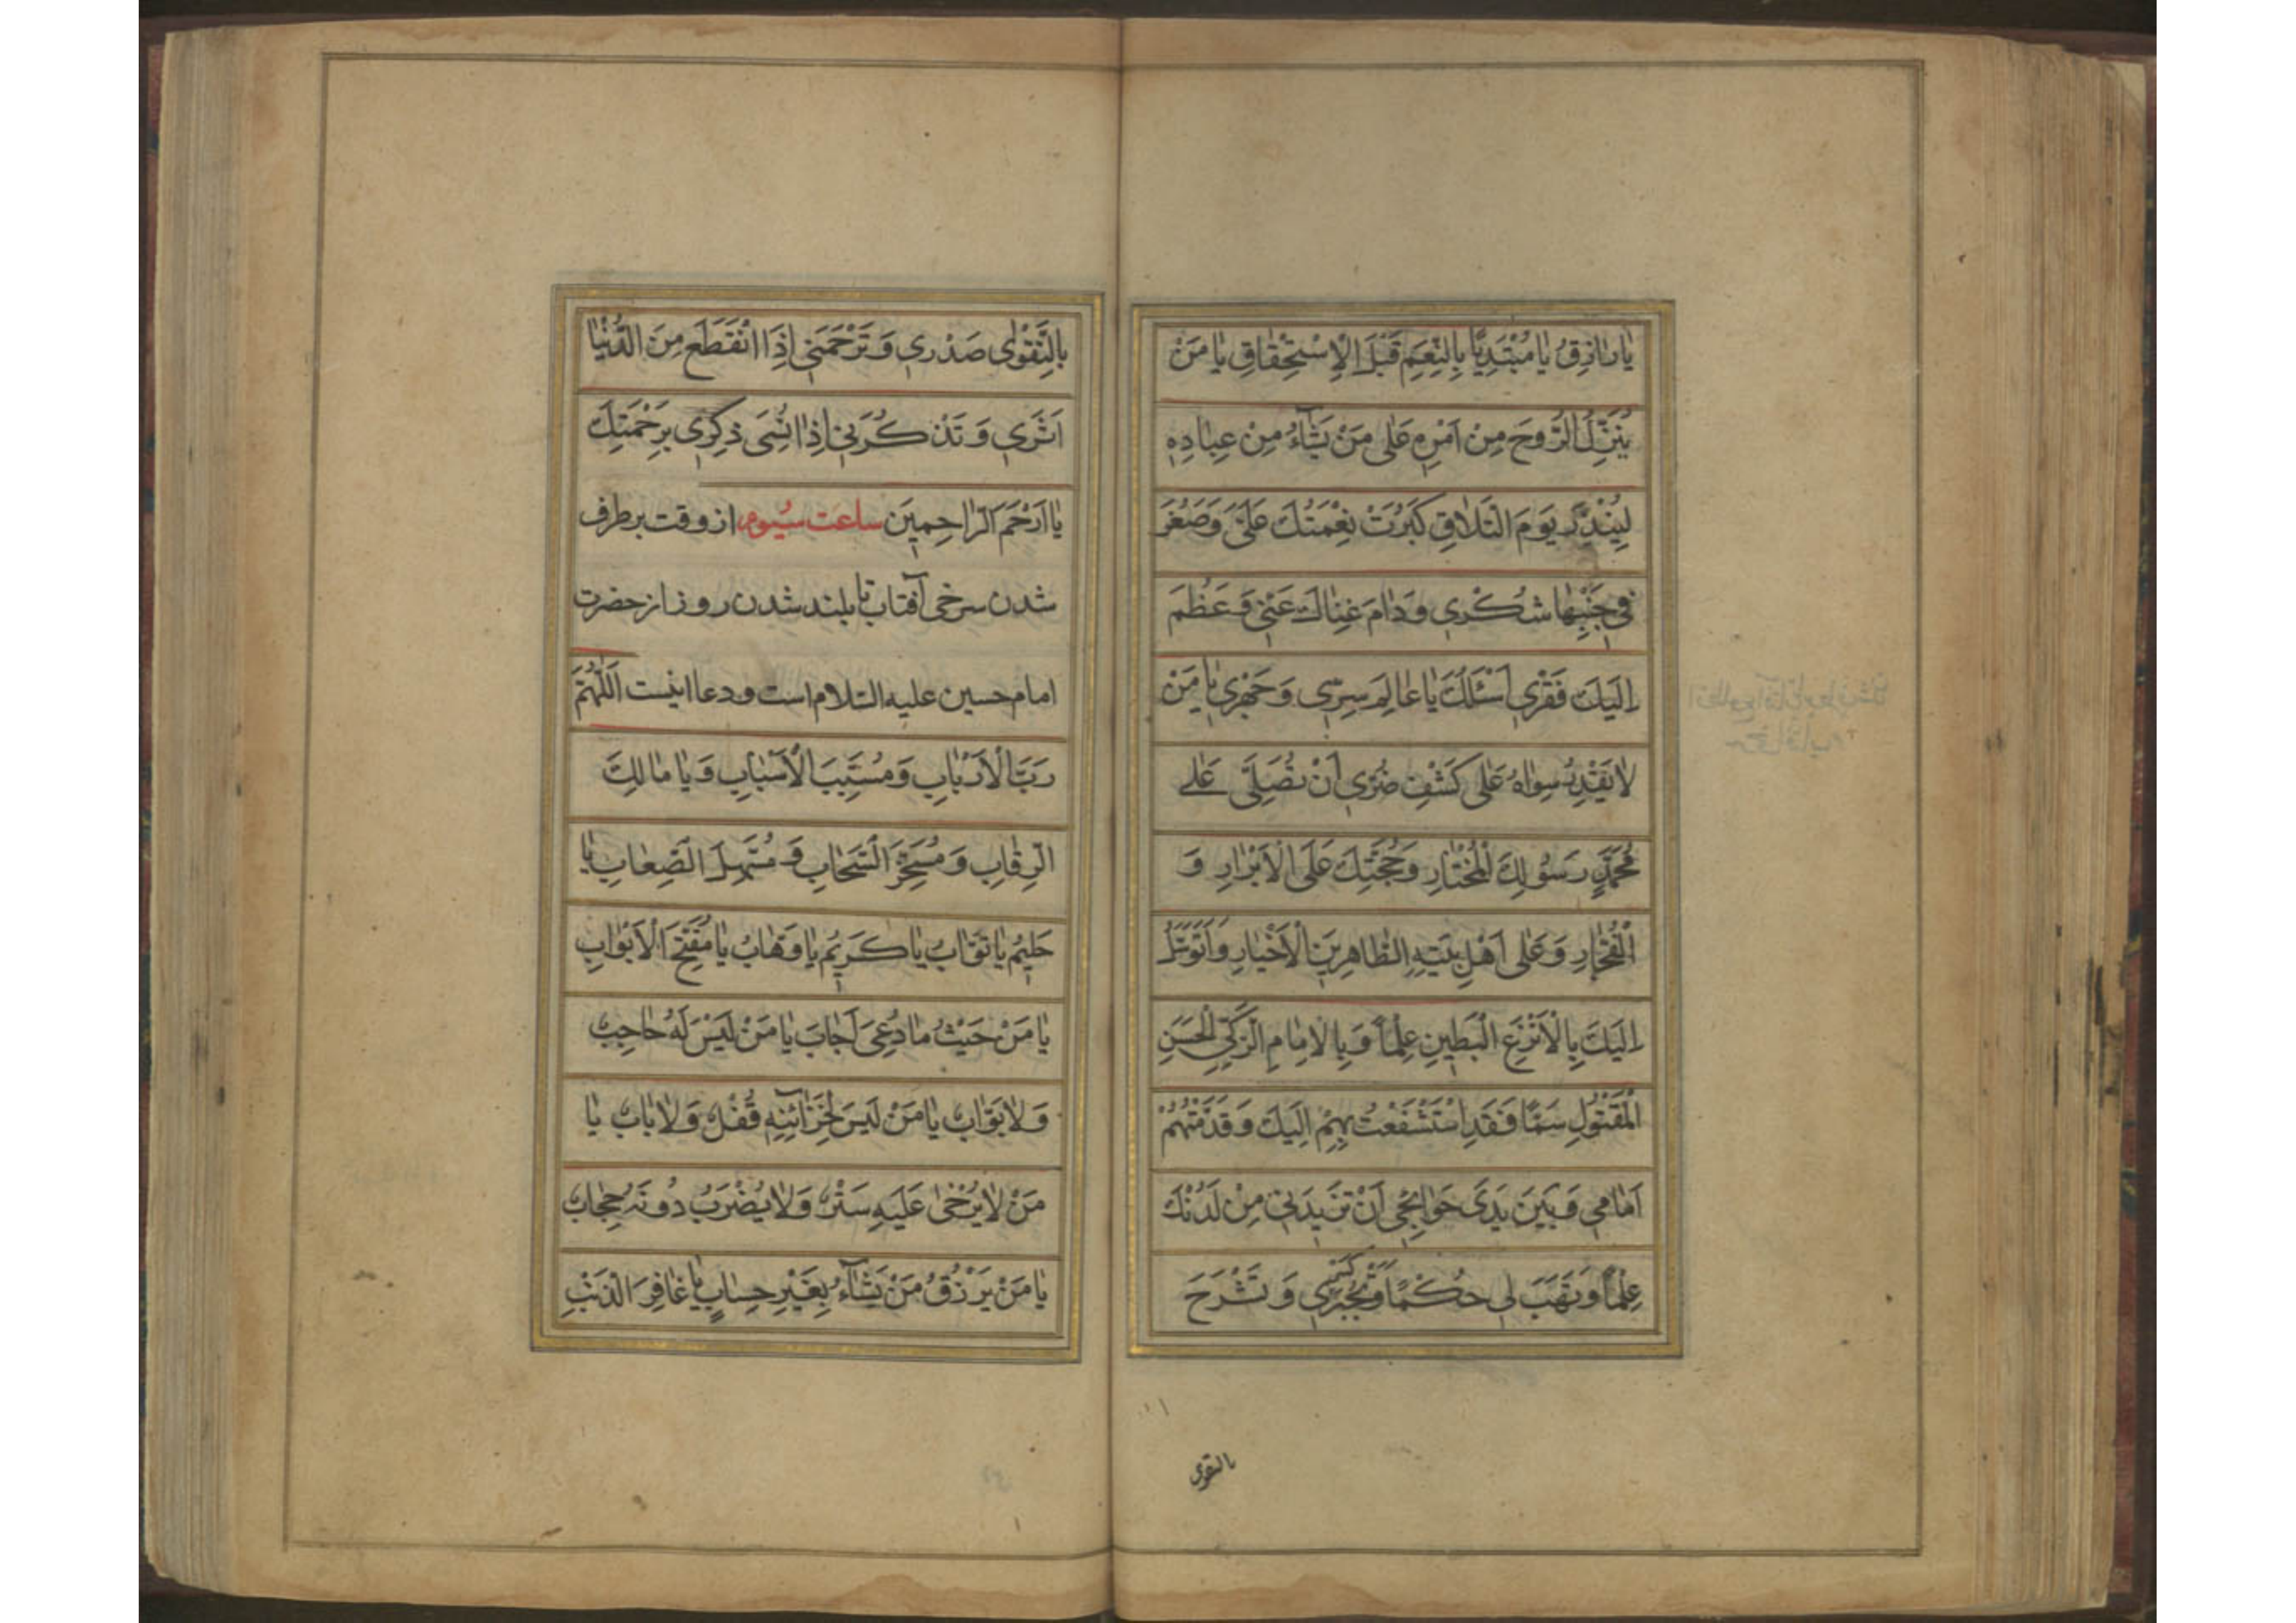 يَا رَازِقُ يَا مُبْتَدِيًّا بِالنِّعَمِ قَبْلَ الْاِسْتِحْقَاقِ يَا مَنْ
يُنَزِّلُ الرُّوحَ مِنْ اَمْرِهِ عَلٰى مَنْ يَشَآءُ مِنْ عِبَادِهِ
لِيُنْذِرَ يَوْمَ التَّلَاقِ كَبُرَتْ نِعْمَتُكَ عَلَىَّ وَصَغُرَ
فِي جَنْبِهَا شُكْرِي وَدَامَ غِنَاكَ عَنّٖي وَعَظُمَ
اِلَيْكَ فَقْرِي اَسْئَلُكَ يَا عَالِمَ سِرّٖي وَجَهْرِي يَا مَنْ
لَا يَقْدِرُ سِوَاهُ عَلٰى كَشْفِ ضُرّٖي اَنْ تُصَلِّىَ عَلٰى
مُحَمَّدٍ رَسُولِكَ الْمُخْتَارِ وَحُجَّتِكَ عَلَى الْاَبْرَارِ وَ
الْفُجَّارِ وَعَلٰى اَهْلِ بَيْتِهِ الطَّاهِرِينَ الْاَخْيَارِ وَاَتَوَسَّلُ
اِلَيْكَ بِالْاَنْزَعِ الْبَطِينِ عِلْمًا وَبِالْاِمَامِ الزَّكِيِّ الْحَسَنِ
الْمَقْتُولِ سَمًّا فَقَدِ اسْتَشْفَعْتُ بِهِمْ اِلَيْكَ وَقَدَّمْتُهُمْ
اَمَامِي وَبَيْنَ يَدَىْ حَوَائِجِي اَنْ تَزِيدَنِي مِنْ لَدُنْكَ
عِلْمًا وَتَهَبَ لِي حُكْمًا وَتَجْبُرَ كَسْرِي وَتَشْرَحَ
بالتقوی
بِالتَّقْوٰى صَدْرِي وَتَرْحَمَنِي اِذَا انْقَطَعَ مِنَ الدُّنْيَا
اَثَرِي وَتَذْكُرَنِي اِذَا نُسِىَ ذِكْرِي بِرَحْمَتِكَ
يَا اَرْحَمَ الرَّاحِمِينَ ساعت سُيوم از وقت برطرف
شدن سرخی آفتاب تا بلند شدن روز از حضرت
امام حسین علیه السّلام است و دعا اینست اَللّٰهُمَّ
رَبَّ الْاَرْبَابِ وَمُسَبِّبَ الْاَسْبَابِ وَيَا مَالِكَ
الرِّقَابِ وَمُسَخِّرَ السَّحَابِ وَمُسَهِّلَ الصِّعَابِ يَا
حَلِيمُ يَا تَوَّابُ يَا كَرِيمُ يَا وَهَّابُ يَا مُفَتِّحَ الْاَبْوَابِ
يَا مَنْ حَيْثُ مَا دُعِىَ اَجَابَ يَا مَنْ لَيْسَ لَهُ حَاجِبٌ
وَلَا بَوَّابٌ يَا مَنْ لَيْسَ لِخَزَآئِنِهِ قُفْلٌ وَلَا بَابٌ يَا
مَنْ لَا يُرْخٰى عَلَيْهِ سَتْرٌ وَلَا يُضْرَبُ دُونَهُ حِجَابٌ
يَا مَنْ يَرْزُقُ مَنْ يَشَآءُ بِغَيْرِ حِسَابٍ يَا غَافِرَ الذَّنْبِ